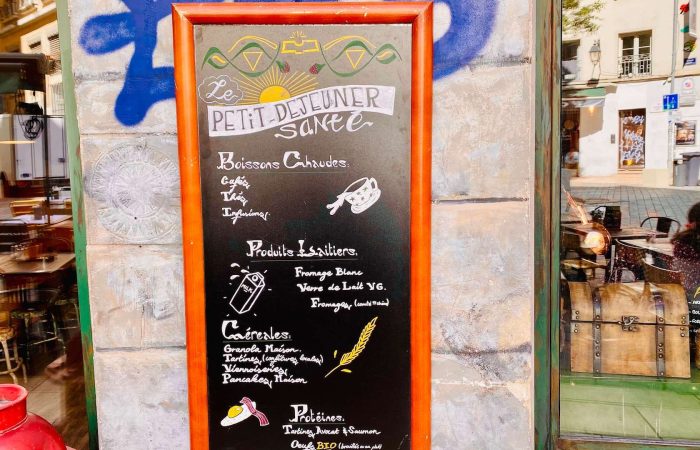 Le
PETIT-DEJEUNER
SANTÉ
Boissons Chaudes.
Cafés
Thés
Infusions
Produits Laitiers.
Fromage Blanc
Verre de Lait VG.
Fromages
MILK
Céréales.
Granola Maison
Tartines
Viennoiseries
Pancakes Maison
Protéines.
Tartines Avocat & Saumon
Oeufs BIO